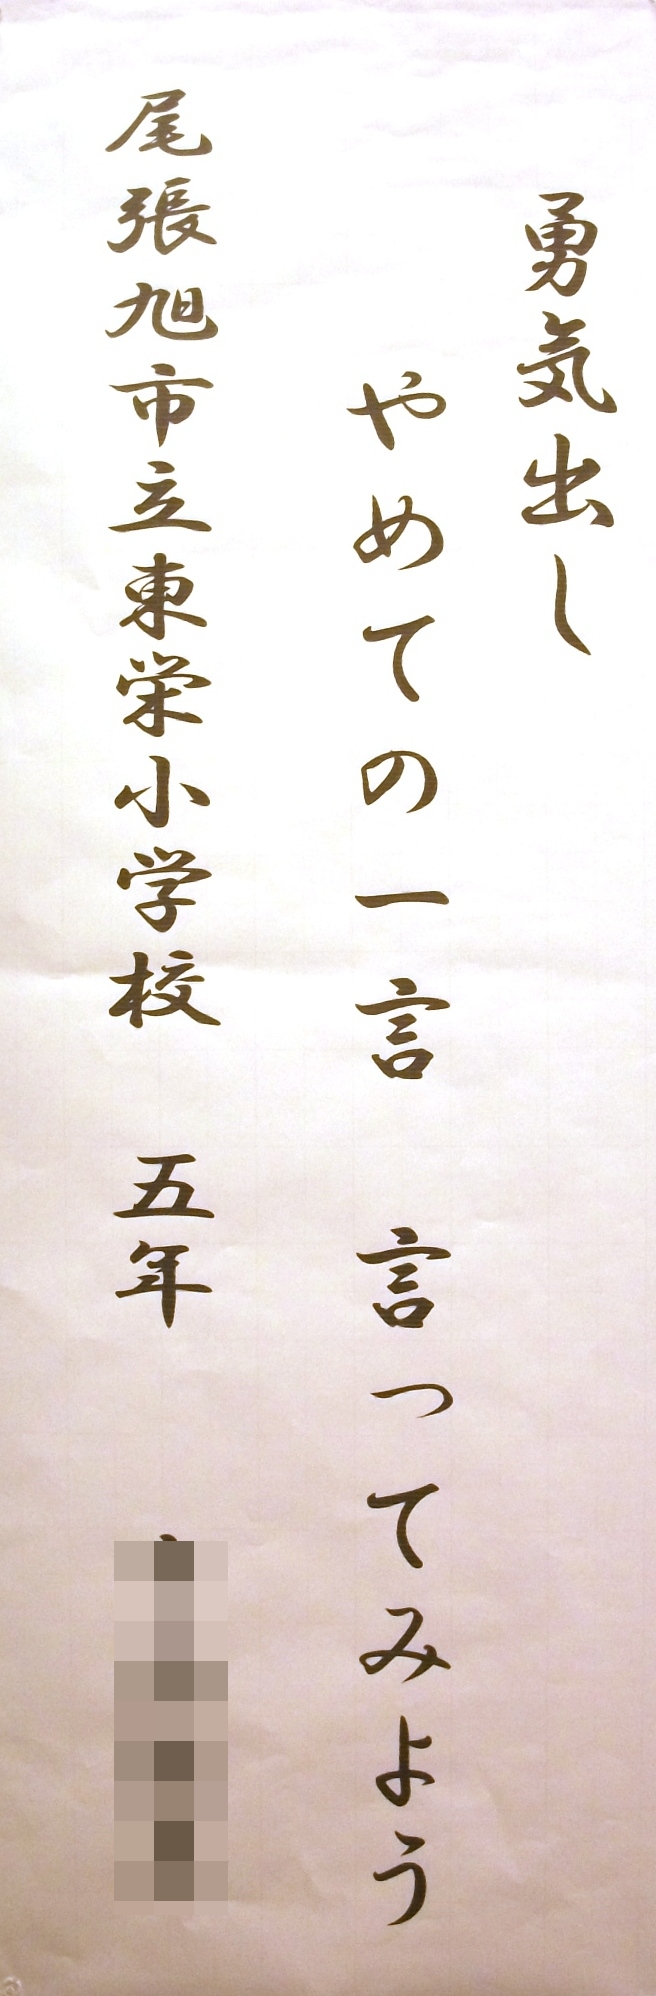 勇気出し
やめての一言　言ってみよう
尾張旭市立東栄小学校　五年